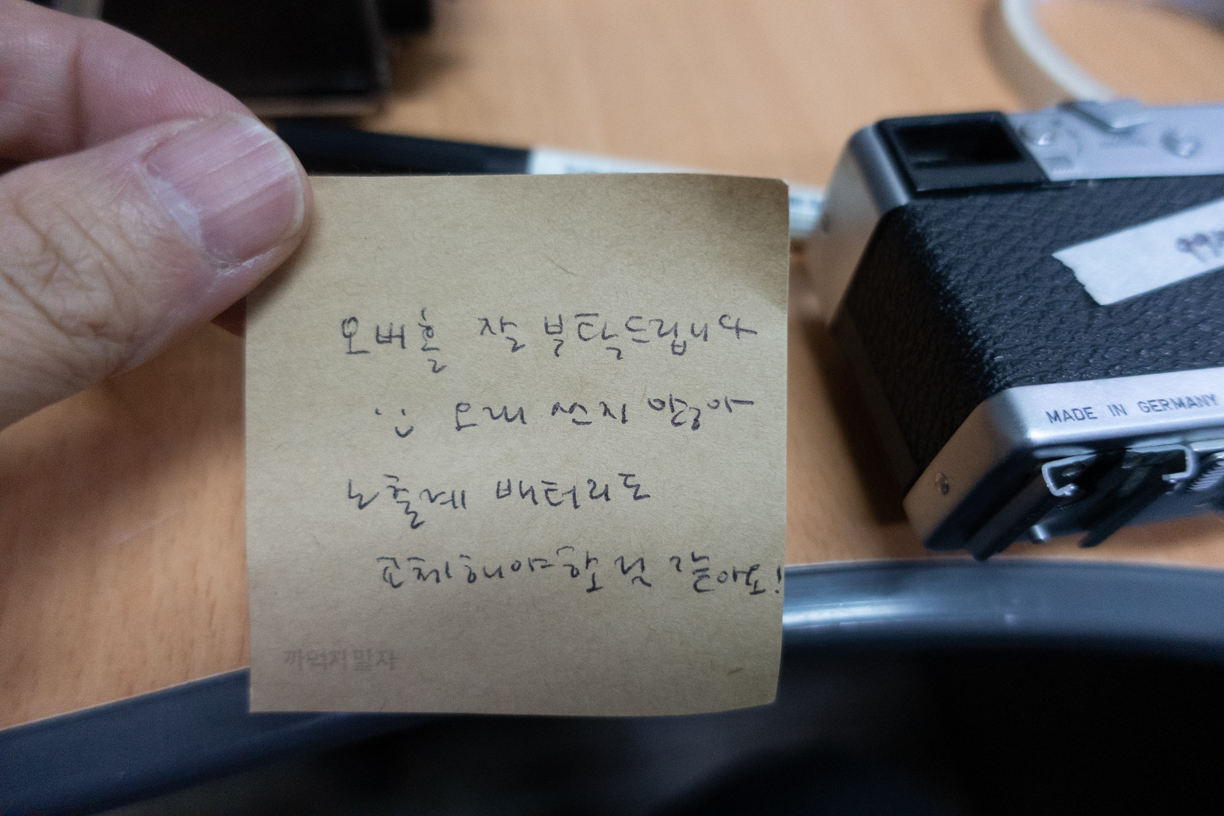 오버홀 잘 부탁드립니다
:) 오래 쓰지 않아
노출계 배터리도
교체해야할 것 같아요!
까먹지말자
MADE IN GERMANY